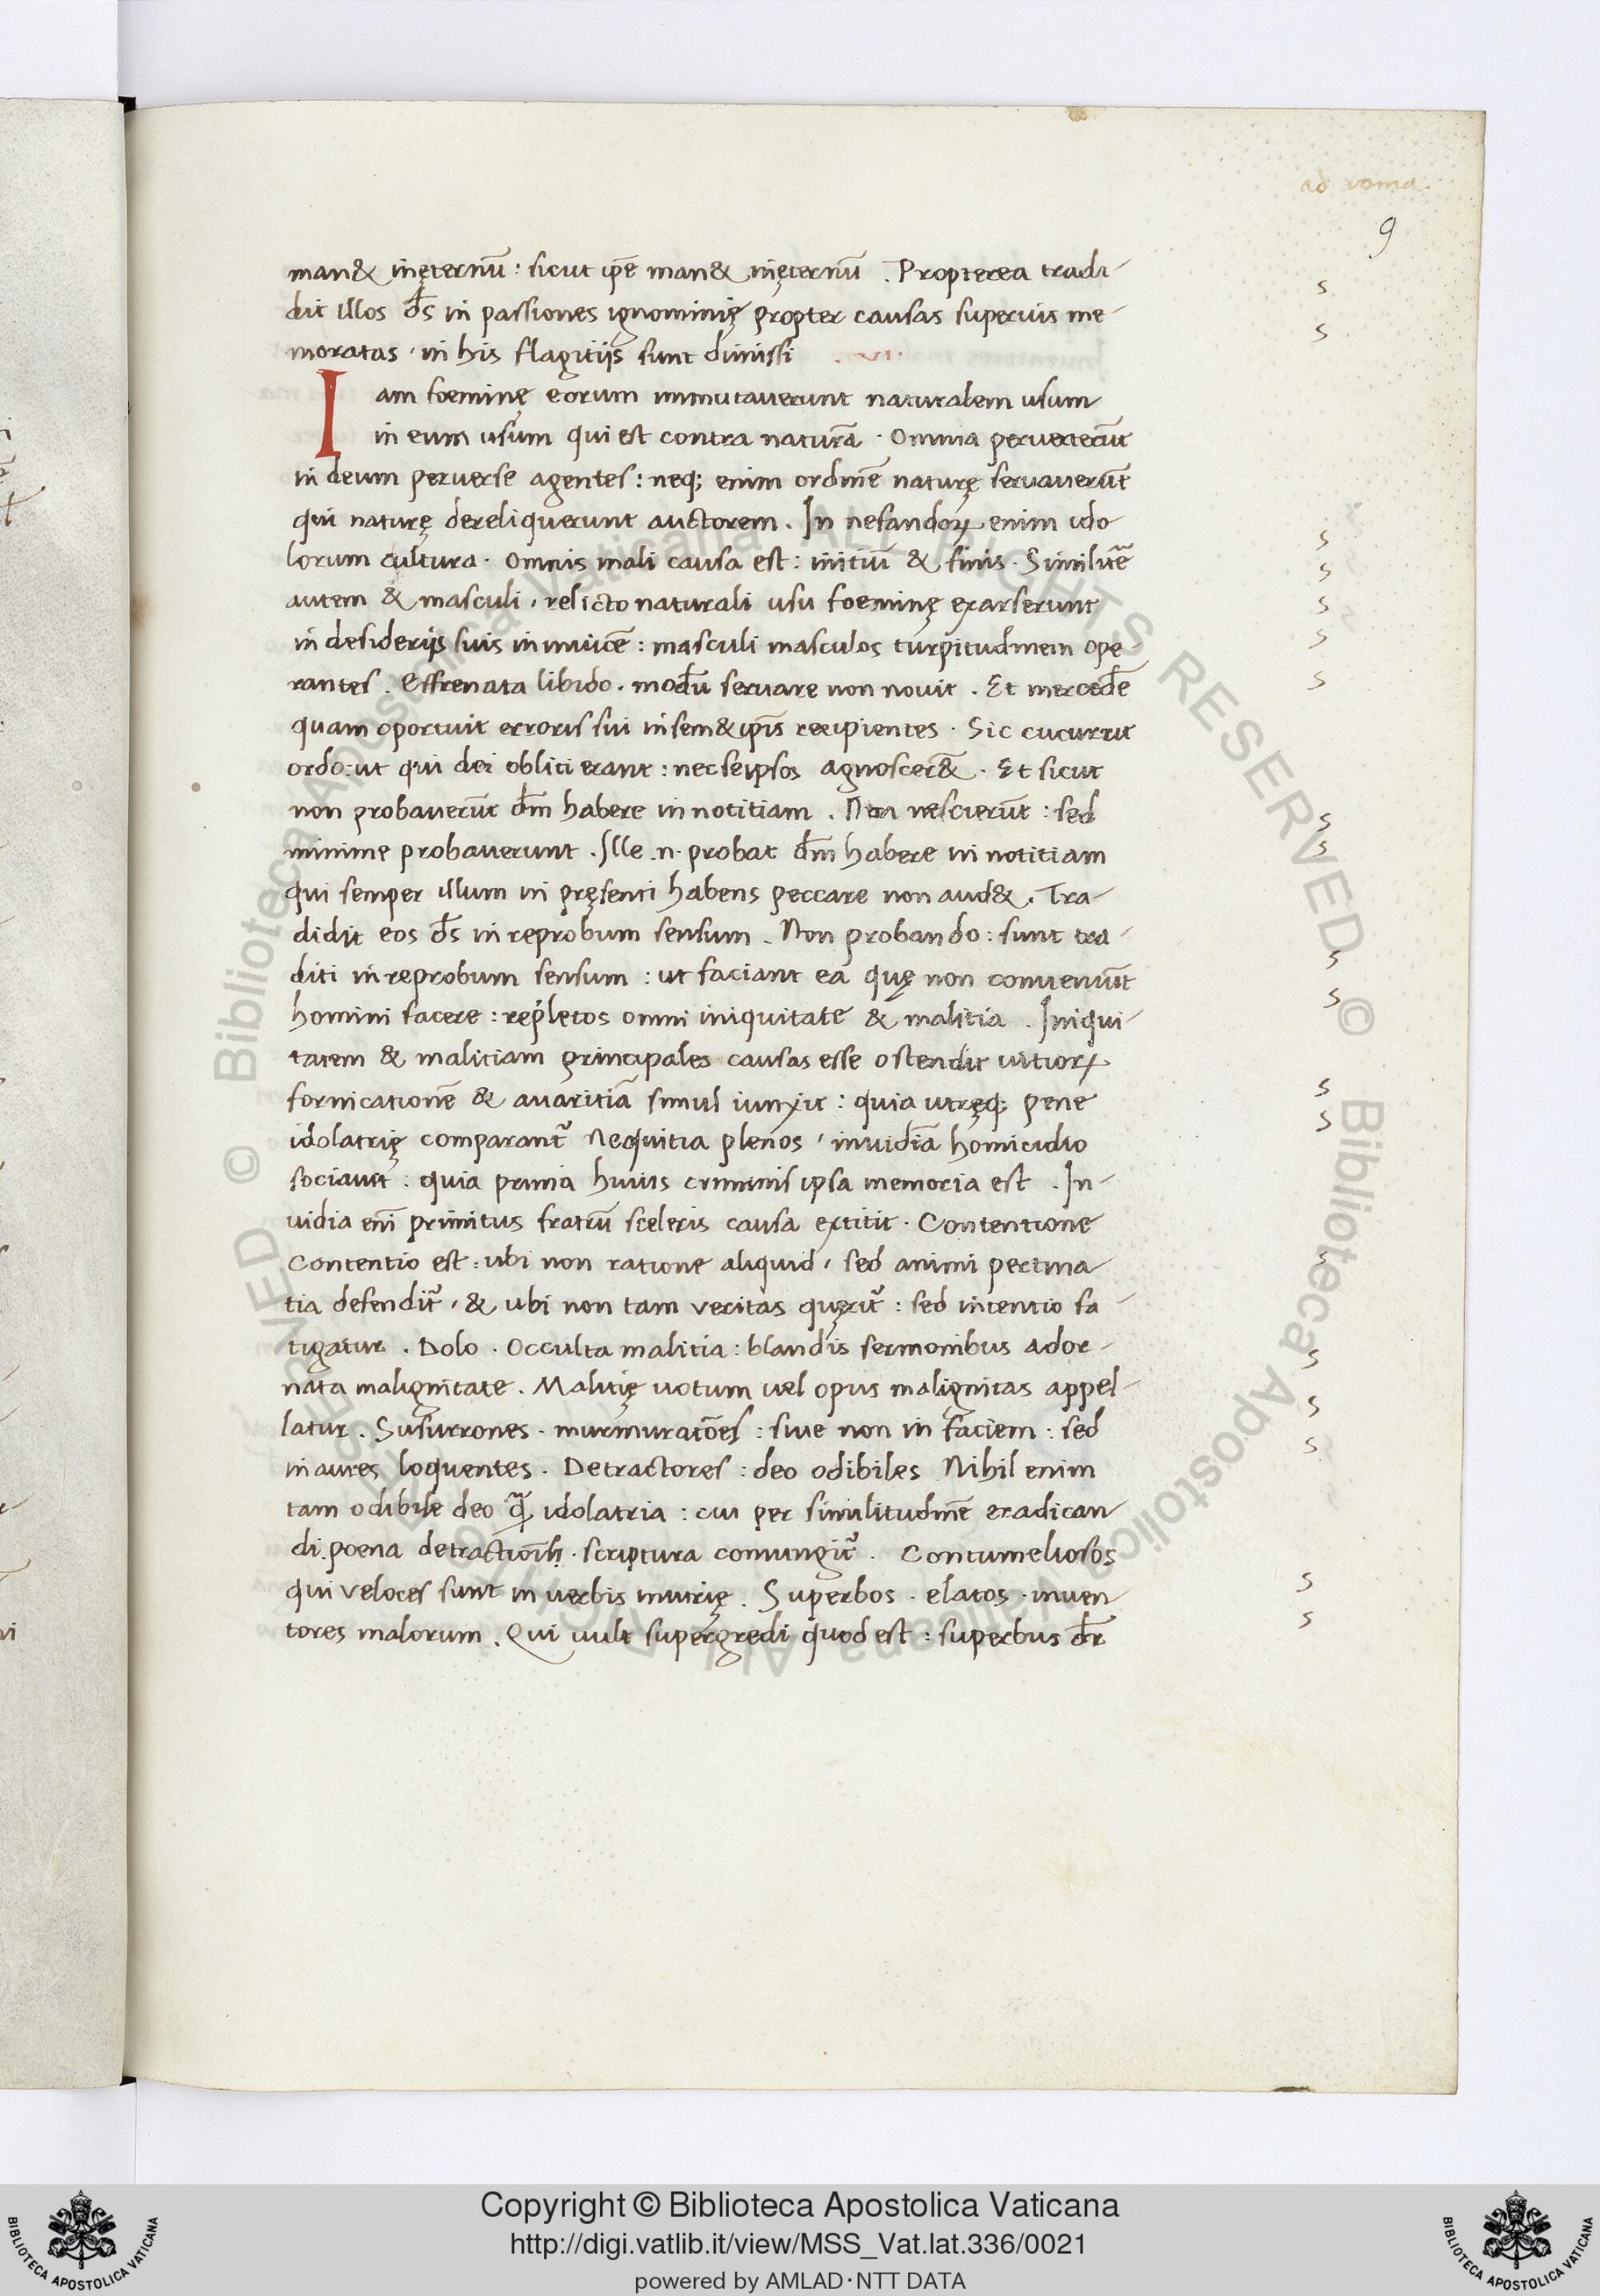 ad roma.
9
man& inęternū : sicut ip̄e man& inęternū . Propterea tradi-
dit illos d̄s in passiones ignominię propter causas superius me-
moratas · in his flagitijs sunt dimissi . VI.
Iam foeminę eorum inmutauerunt naturalem usum
in eum usum qui est contra naturā · Omnia peruerterūt
in deum peruerse agentes : neq; enim ordinē naturę seruauerūt
qui naturę dereliquerunt auctorem . In nefandoꝝ enim ido
lorum cultura · Omnis mali causa est : initiū & finis · Similit̄ē
autem & masculi · relicto naturali usu foeminę exarserunt
in desiderijs suis in inuicē : masculi masculos turpitudinem ope-
rantes . Effrenata libido · modū seruare non nouit . Et mercedē
quam oportuit erroris sui in sem&ip̄is recipientes · Sic cucurrit
ordo : ut qui dei obliti erant : nec seipsos agnoscer& · Et sicut
non probauerūt dm̄ habere in notitiam . Non nescierūt : sed
minime probauerunt . Ille .n. probat dm̄ habere in notitiam
qui semper illum in pręsenti habens peccare non aud& . Tra-
didit eos d̄s in reprobum sensum . Non probando : sunt tra-
diti in reprobum sensum : ut faciant ea quę non conueniūt
homini facere : repletos omni iniquitate & malitia . Iniqui-
tatem & malitiam principales causas esse ostendit uitioꝝ
fornicationē & auaritiā simul iunxit : quia utręq; pene
idolatrię comparant᷑ Nequitia plenos · inuidiā homicidio
sociauit : quia prima huius criminis ipsa memoria est . In-
uidia eni̅ primitus fratrū sceleris causa extitit · Contentione
Contentio est : ubi non ratione aliquid · sed animi pertina
tia defendit᷑ · & ubi non tam veritas quęrit᷑ : sed intentio fa-
tigatur . Dolo · Occulta malitia : blandis sermonibus ador-
nata malignitate . Malitię uotum uel opus malignitas appel-
latur . Susurrones · murmuratōes : siue non in faciem : sed
in aures loquentes . Detractores : deo odibiles Nihil enim
tam odibile deo q̄ idolatria : cui per similitudinē eradican
di . poena detractionis · scriptura coniungit᷑ . Contumeliosos
qui veloces sunt in uerbis iniurię . Superbos · elatos · inuen
tores malorum . Qui uult supergredi quod est : superbus dr̄
Copyright © Biblioteca Apostolica Vaticana
http://digi.vatlib.it/view/MSS_Vat.lat.336/0021
powered by AMLAD·NTT DATA